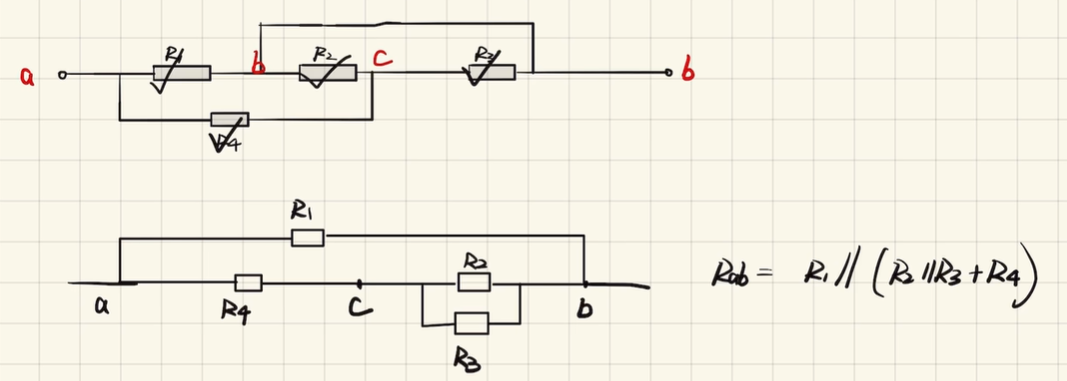 R1 R2 R3
a b c b
R4
R1
R2
a R4 c b
R3
Rab = R1 // (R2 // R3 + R4)